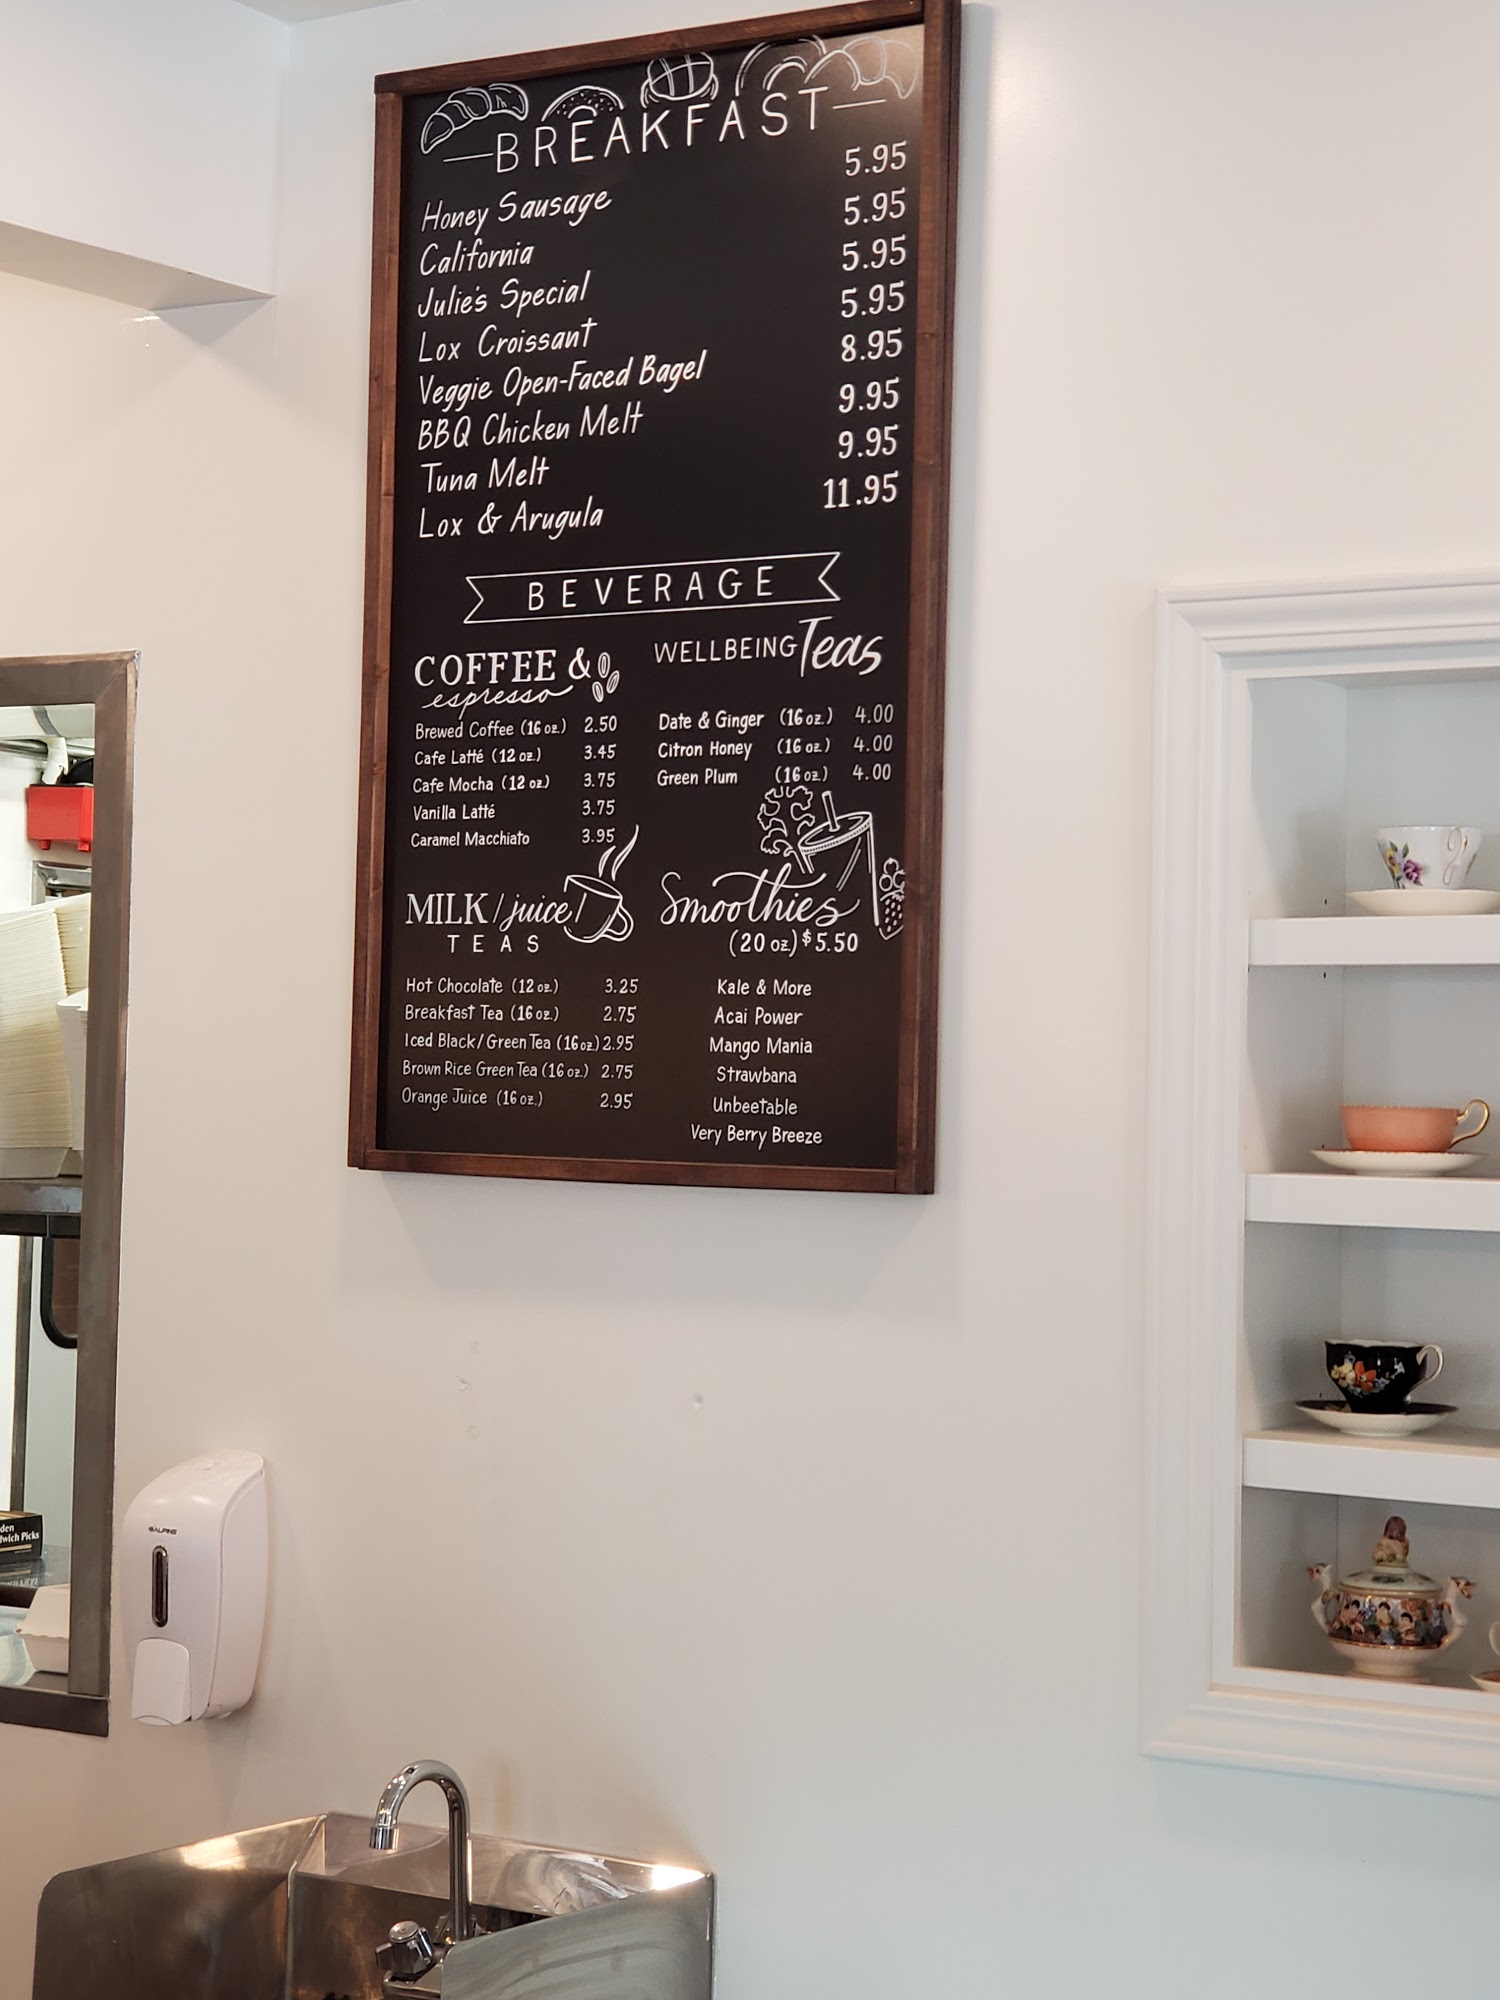 BREAKFAST
Honey Sausage 5.95
California 5.95
Julie's Special 5.95
Lox Croissant 5.95
Veggie Open-Faced Bagel 8.95
BBQ Chicken Melt 9.95
Tuna Melt 9.95
Lox & Arugula 11.95
BEVERAGE
COFFEE &
espresso
Brewed Coffee (16 oz.) 2.50
Cafe Latté (12 oz.) 3.45
Cafe Mocha (12 oz.) 3.75
Vanilla Latté 3.75
Caramel Macchiato 3.95
WELLBEING Teas
Date & Ginger (16 oz.) 4.00
Citron Honey (16 oz.) 4.00
Green Plum (16 oz.) 4.00
MILK/juice/
TEAS
Hot Chocolate (12 oz.) 3.25
Breakfast Tea (16 oz.) 2.75
Iced Black/Green Tea (16 oz.) 2.95
Brown Rice Green Tea (16 oz.) 2.75
Orange Juice (16 oz.) 2.95
Smoothies
(20 oz.) $5.50
Kale & More
Acai Power
Mango Mania
Strawbana
Unbeetable
Very Berry Breeze
ALPINE
den
wich Picks